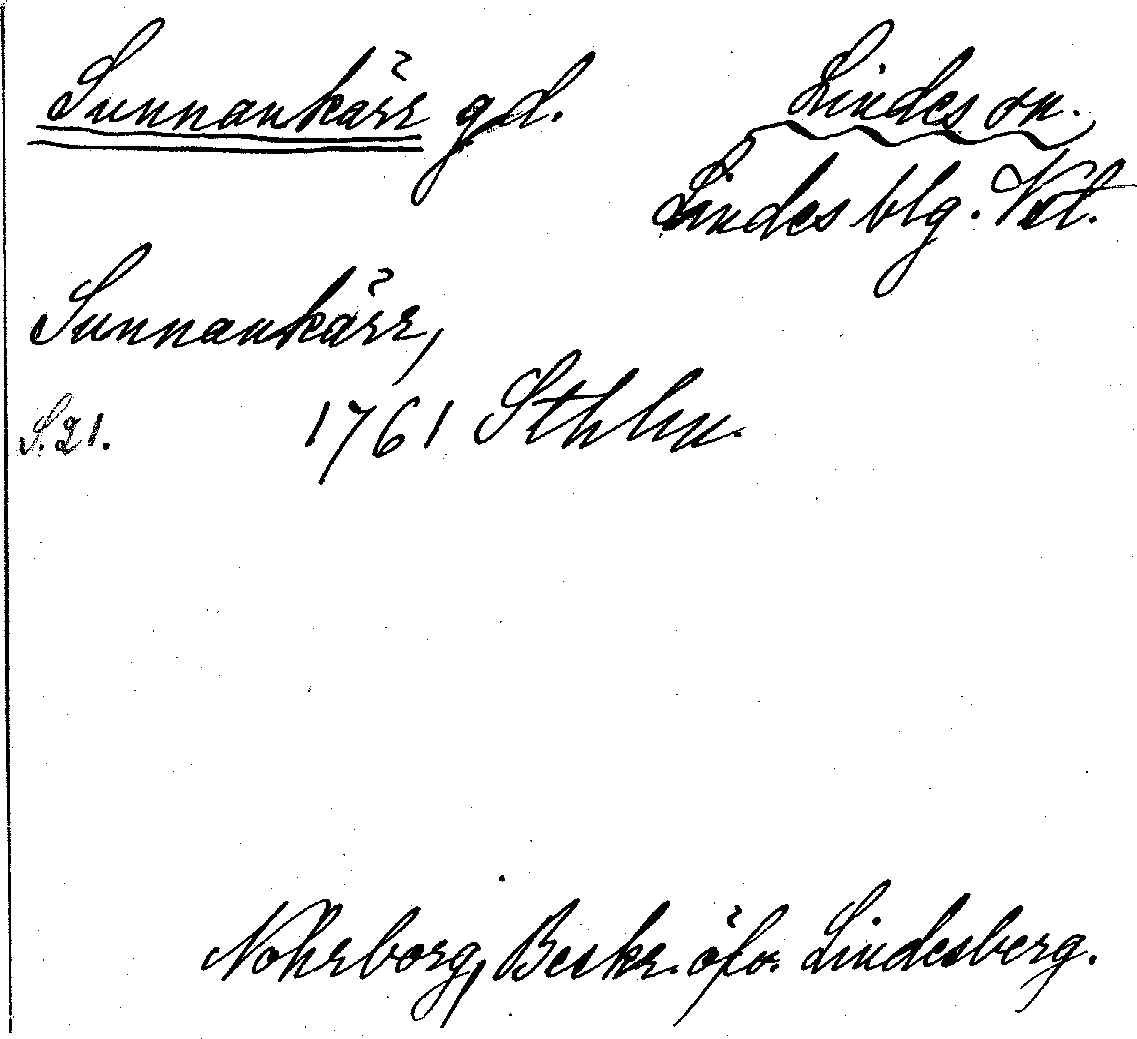 Sunnankärr gd. Lindes sn.
Lindes blg. Vstl.
Sunnankärr,
S. 21. 1761 Sthlm.
Nohrborg, Beskr. öfv. Lindesberg.